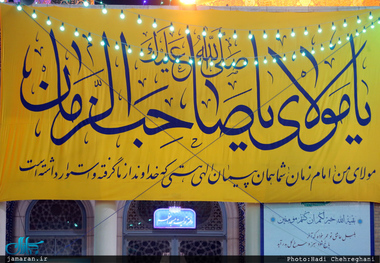 صلی الله علیک
یا مولای یا صاحب الزمان
مولای من امام زمان شما همان پیمان الهی هستی که خداوند از ما گرفته و استوار داشته است
بقیة الله خیر لکم ان کنتم مومنین
jamaran.ir
Photo:Hadi Chehreghani